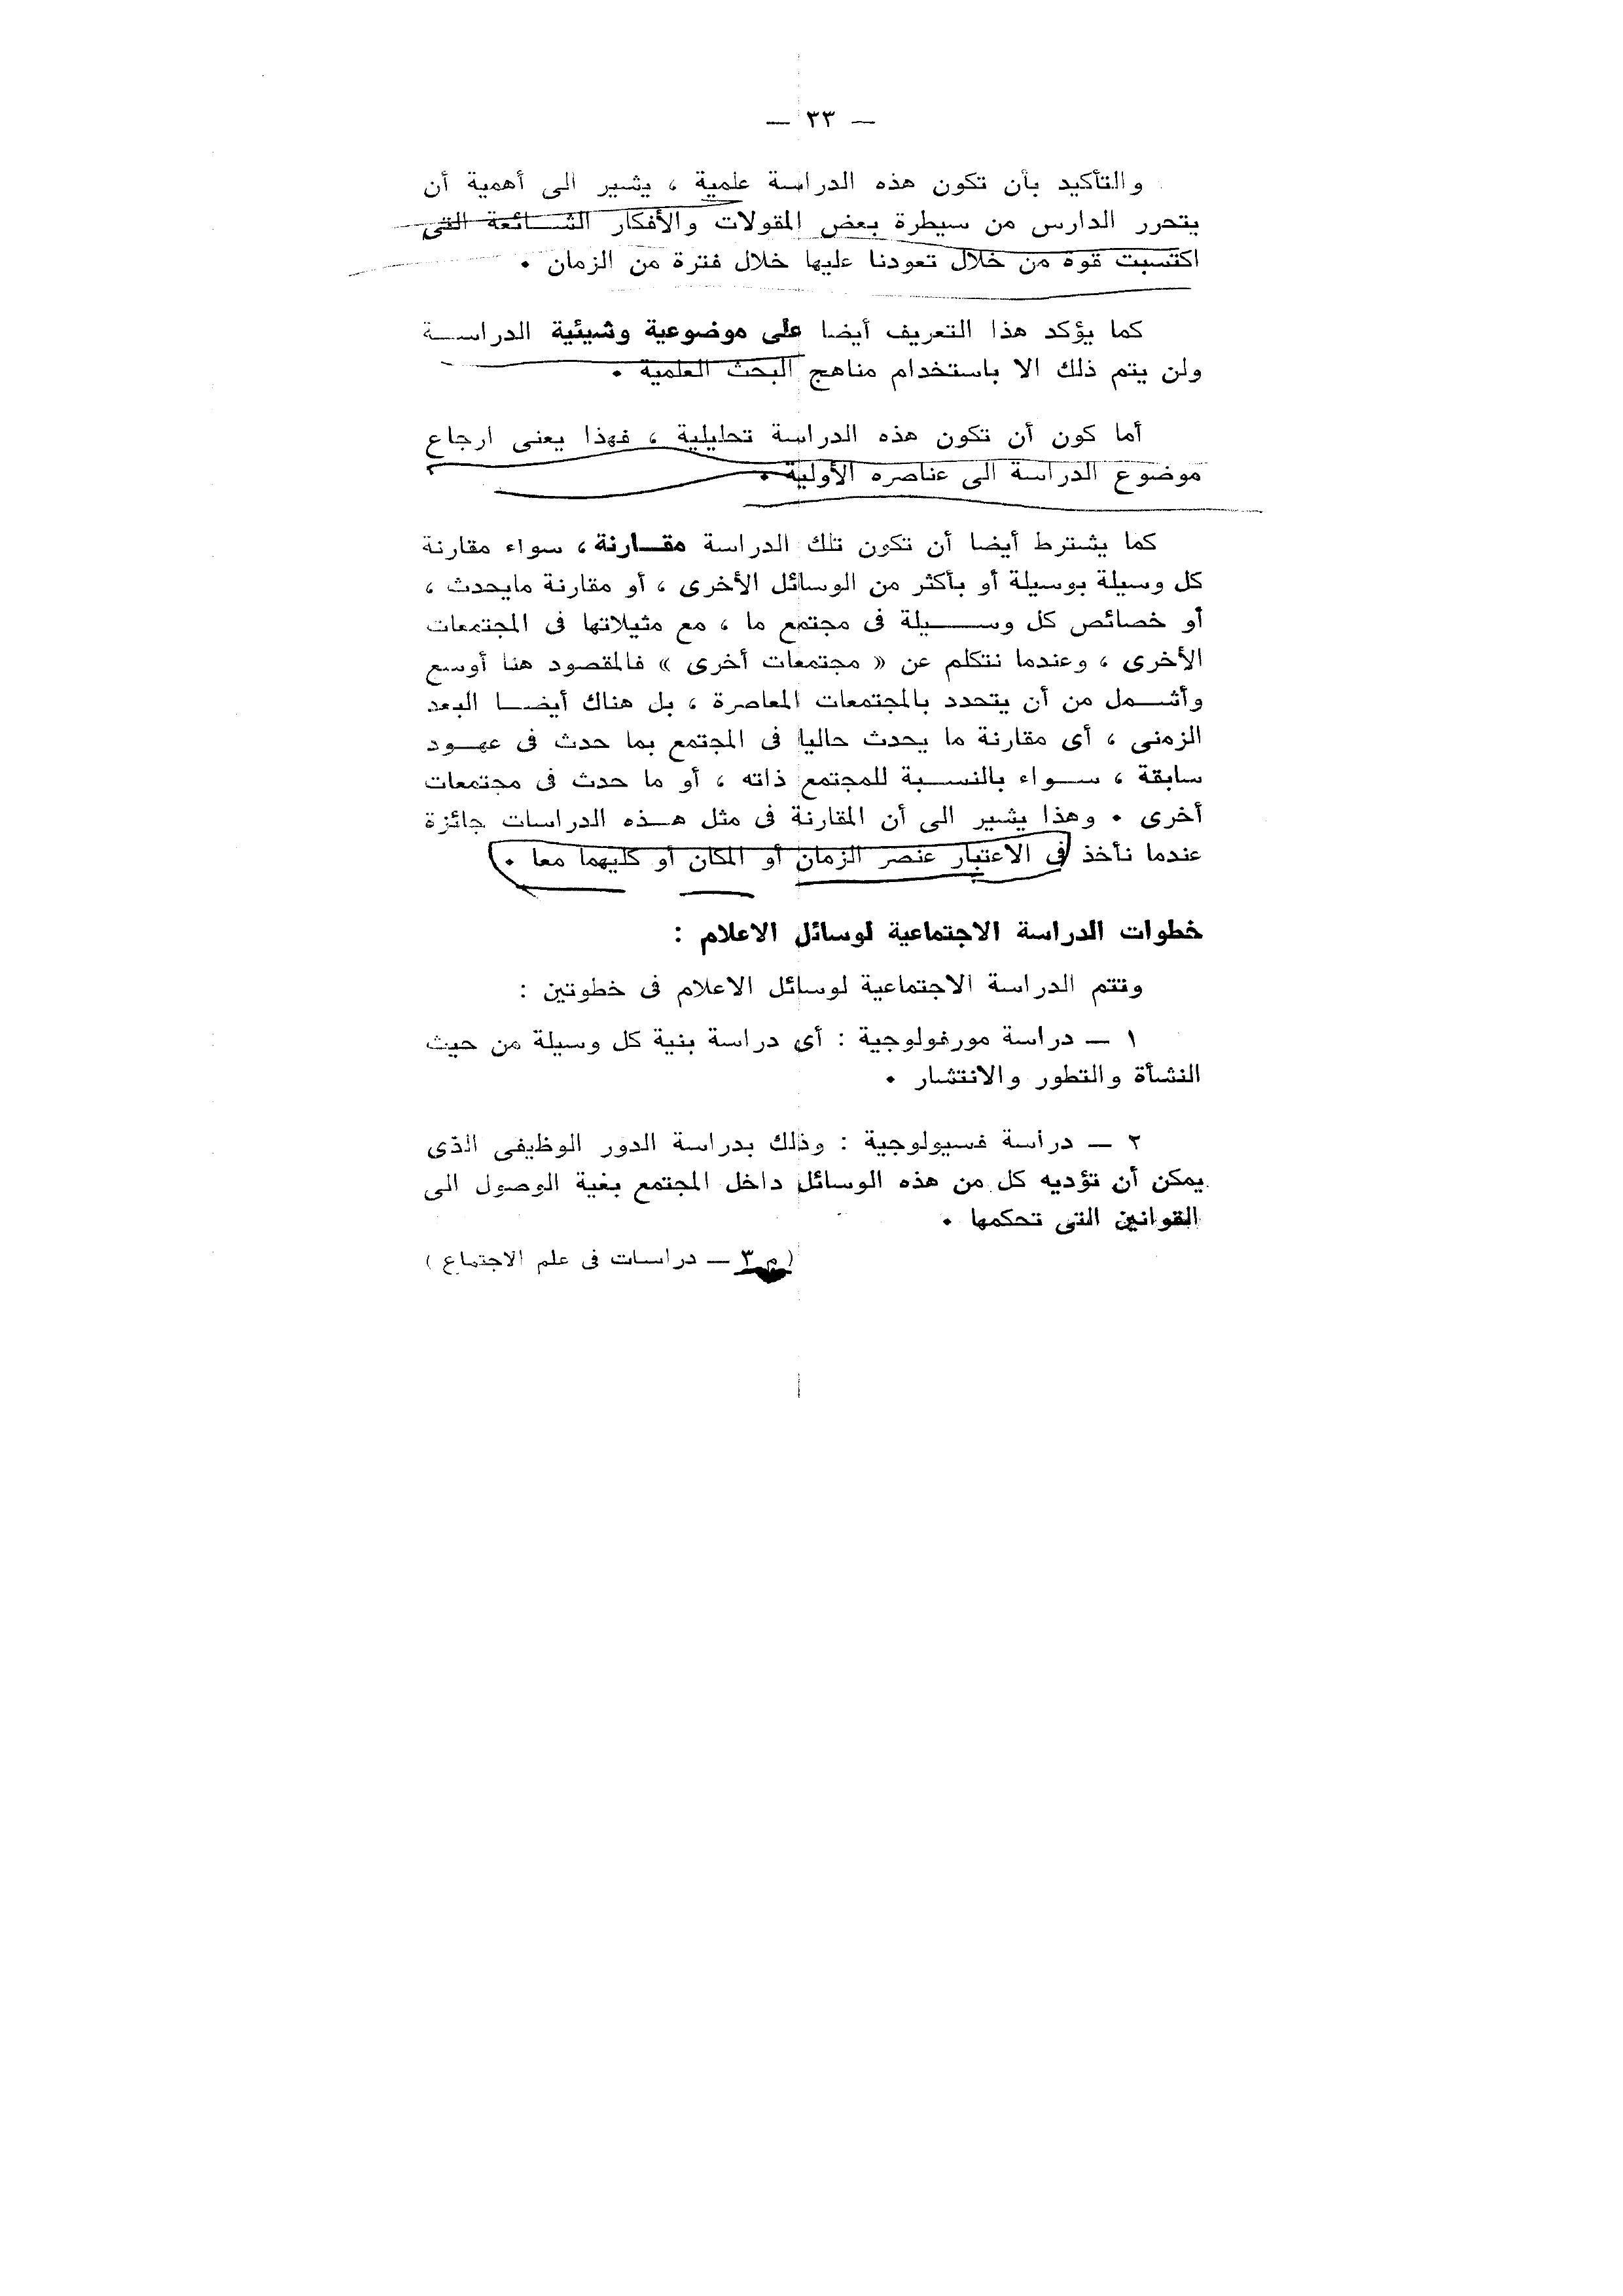 — ٣٣ —
والتأكيد بأن تكون هذه الدراسة علمية ، يشير الى أهمية أن
يتحرر الدارس من سيطرة بعض المقولات والأفكار الشائعة التى
اكتسبت قوة من خلال تعودنا عليها خلال فترة من الزمان .
كما يؤكد هذا التعريف أيضا على موضوعية وشيئية الدراسة
ولن يتم ذلك الا باستخدام مناهج البحث العلمية .
أما كون أن تكون هذه الدراسة تحليلية ، فهذا يعنى ارجاع
موضوع الدراسة الى عناصره الأولية .
كما يشترط أيضا أن تكون تلك الدراسة مقارنة ، سواء مقارنة
كل وسيلة بوسيلة أو بأكثر من الوسائل الأخرى ، أو مقارنة مايحدث ،
أو خصائص كل وسيلة فى مجتمع ما ، مع مثيلاتها فى المجتمعات
الأخرى ، وعندما نتكلم عن « مجتمعات أخرى » فالمقصود هنا أوسع
وأشمل من أن يتحدد بالمجتمعات المعاصرة ، بل هناك أيضا البعد
الزمنى ، أى مقارنة ما يحدث حاليا فى المجتمع بما حدث فى عهود
سابقة ، سواء بالنسبة للمجتمع ذاته ، أو ما حدث فى مجتمعات
أخرى . وهذا يشير الى أن المقارنة فى مثل هذه الدراسات جائزة
عندما نأخذ فى الاعتبار عنصر الزمان أو المكان أو كليهما معا .
خطوات الدراسة الاجتماعية لوسائل الاعلام :
وتتم الدراسة الاجتماعية لوسائل الاعلام فى خطوتين :
١ — دراسة مورفولوجية : أى دراسة بنية كل وسيلة من حيث
النشأة والتطور والانتشار .
٢ — دراسة فسيولوجية : وذلك بدراسة الدور الوظيفى الذى
يمكن أن تؤديه كل من هذه الوسائل داخل المجتمع بغية الوصول الى
القوانين التى تحكمها .
( م ٣ — دراسات فى علم الاجتماع )